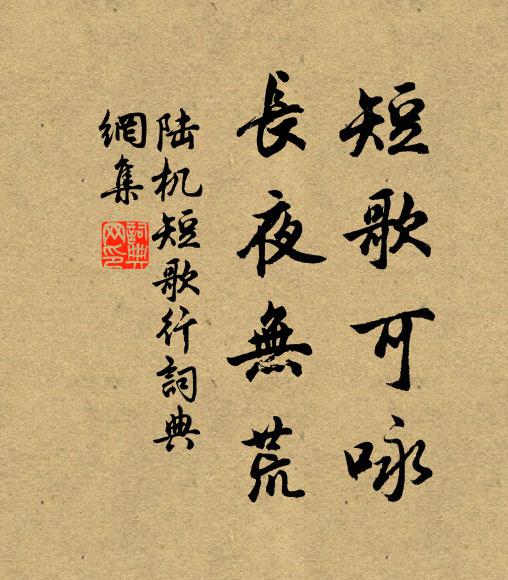 短歌可咏
長夜無荒
陆机短歌行詞典
網集
詞典
网印